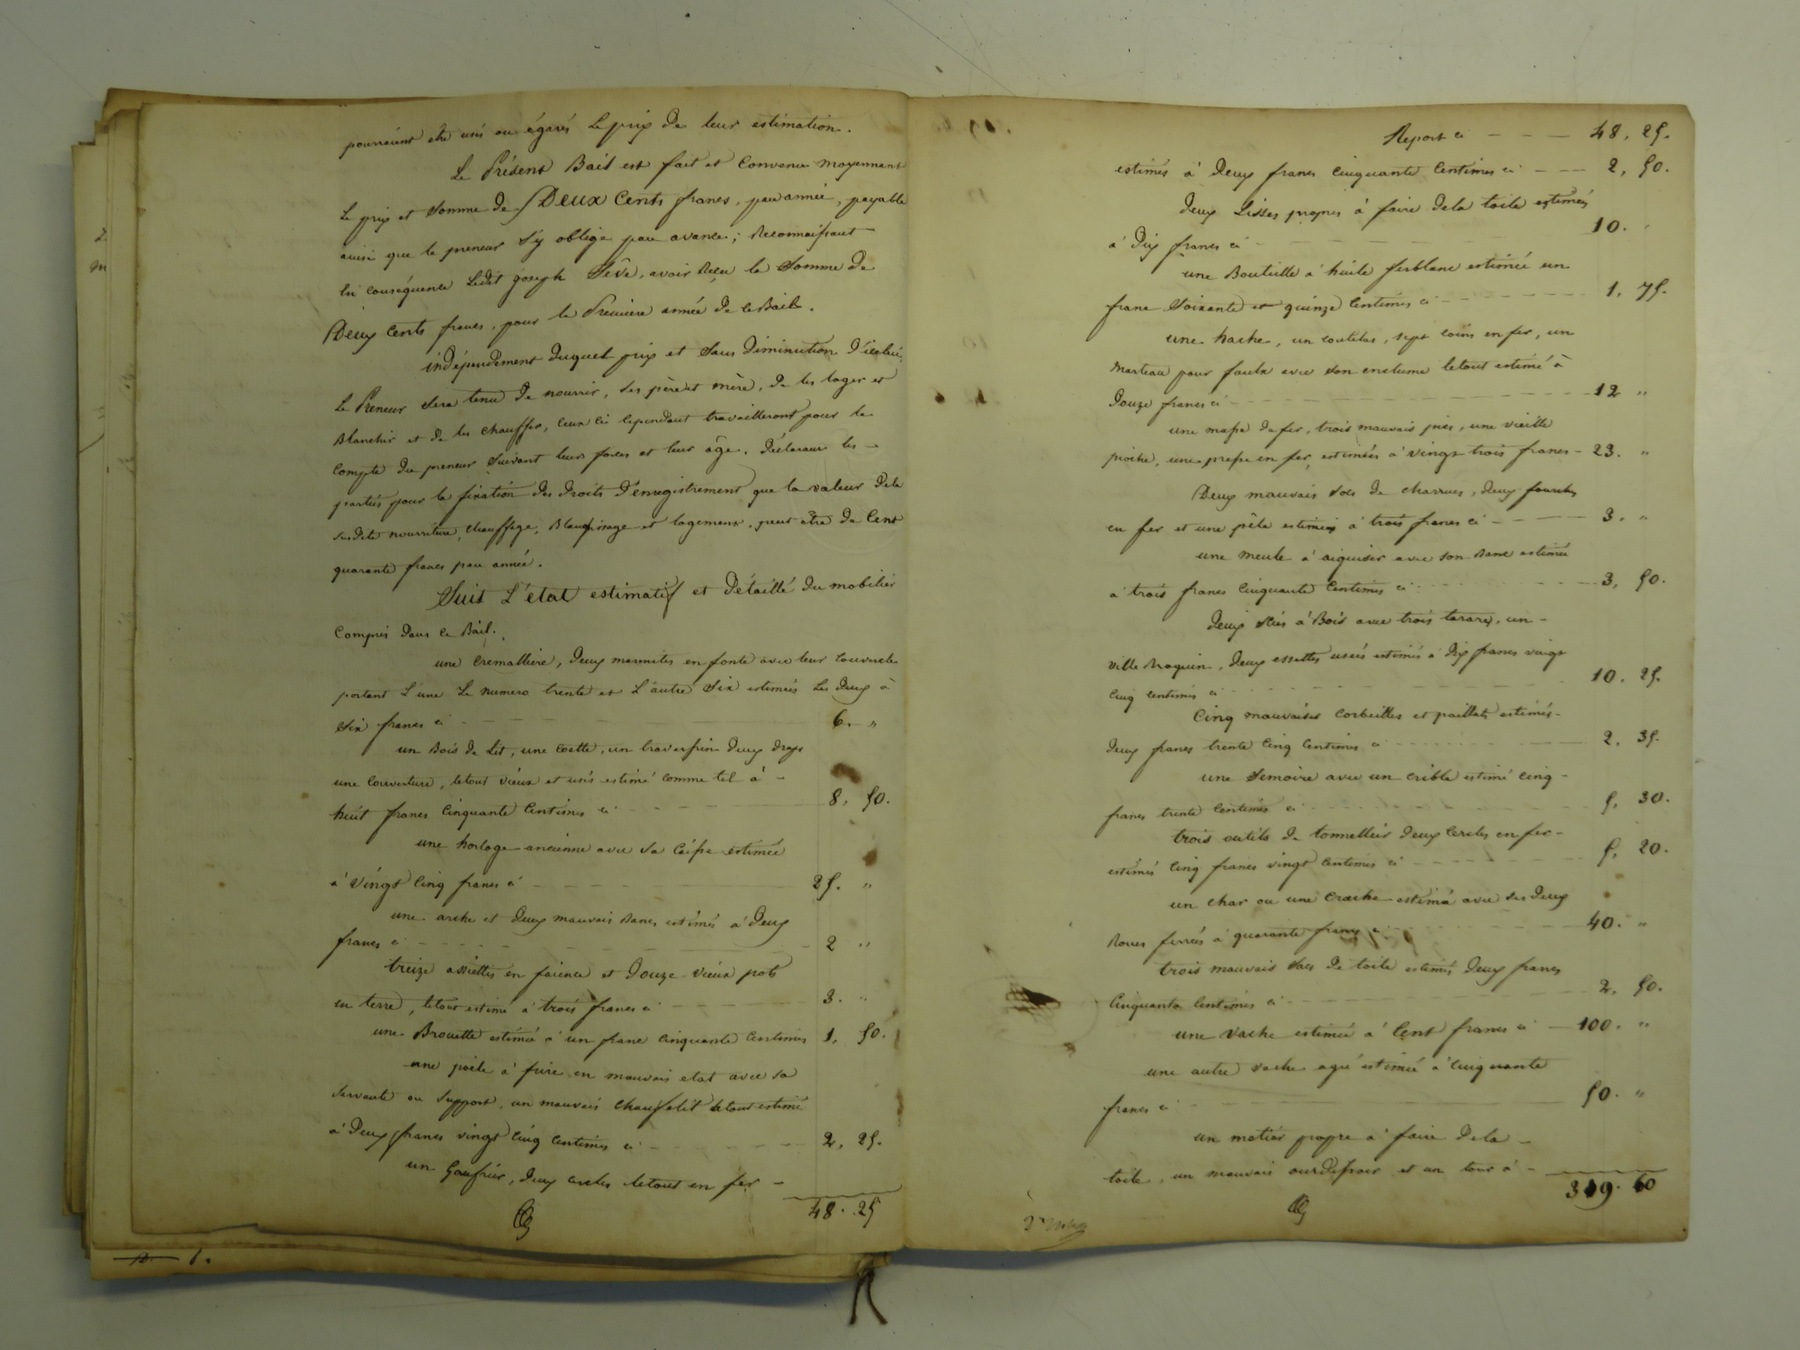 pourraient être usés ou égarés le prix de leur estimation.
Le Présent Bail est fait et convenu moyennant
le prix et somme de Deux Cents francs, par année, payable
ainsi que le preneur s'y oblige par avance; Reconnaissant
en conséquence Ledit joseph Sève, avoir Reçu la Somme de
Deux Cents francs, pour la Première année de ce Bail.
indépendamment duquel prix et Sans diminution d'icelui,
Le Preneur sera tenu de nourrir, ses père et mère, de les loger et
Blanchir et de les chauffer, ceux ci cependant travailleront pour le
compte du preneur suivant leurs forces et leur âge. Déclarant les -
parties pour la fixation des droits d'enregistrement que la valeur dela
susdite nourriture, chauffage, Blanchissage et logement, peut être de Cent
quarante francs par année.
Suit L'état estimatif et Détaillé du mobilier
Compris dans ce Bail.
une Cremallière, deux marmites en fonte avec leur couvercle
portant l'une Le numero trente et L'autre Six estimées Les deux à
Six francs ci - 6. "
un Bois de Lit, une Coette, un traversin deux draps
une Couverture, letout vieux et usés estimé comme tel à -
huit francs Cinquante Centimes ci - 8, 50.
une horloge ancienne avec sa Caisse estimée
à Vingt Cinq francs ci - 25. "
une arche et deux mauvais bancs estimés à deux
francs ci - 2 "
treize assiettes en faience et Douze vieux pots
en terre, letout estimé à trois francs ci - 3. "
une Brouette estimée à un franc Cinquante Centimes 1, 50.
une poële à frire en mauvais etat avec sa
servante ou Support, un mauvais chauffelit letout estimé
à Deux francs vingt Cinq Centimes ci - 2, 25.
un Gaufrier, deux cercles letout en fer -
48. 25
Report ci - 48, 25.
estimés à Deux francs Cinquante Centimes ci - 2, 50.
Deux Lisses propres à faire dela toile estimées
à Dix francs ci - 10. "
une Bouteille à huile ferblanc estimée un
franc Soixante et quinze Centimes ci - 1, 75.
une hache, un coutelas, sept coins en fer, un
Marteau pour faulx avec son enclume letout estimé à
Douze francs ci - 12 "
une masse de fer, trois mauvais pics, une vieille
pioche, une presse en fer, estimées à vingt trois francs - 23. "
Deux mauvais socs de charrues, deux fourches
en fer et une pêle estimées à trois francs ci - 3. "
une meule à aiguiser avec son banc estimée
à trois francs Cinquante Centimes ci - 3, 50.
Deux scies à Bois avec trois tarares, un -
deux essettes usées estimés à dix francs vingt
Cinq Centimes ci - 10. 25.
Cinq mauvaises Corbeilles et paillats estimés-
Deux francs trente Cinq Centimes ci - 2, 35.
une Semoire avec un Crible estimé Cinq -
francs trente Centimes ci - 5, 30.
trois outils de tonnellier deux Cercles en fer -
estimés Cinq francs vingt Centimes ci - 5, 20.
un char ou une estimé avec ses Deux
Roues ferrées à quarante francs ci - 40. "
trois mauvais sacs de toile estimés Deux francs
Cinquante Centimes ci - 2, 50.
une Vache estimée à Cent francs ci - 100. "
une autre vache agée estimée à Cinquante
francs ci - 50. "
un métier propre à faire dela -
toile, un mauvais ourdissoir et un tour à -
319. 60